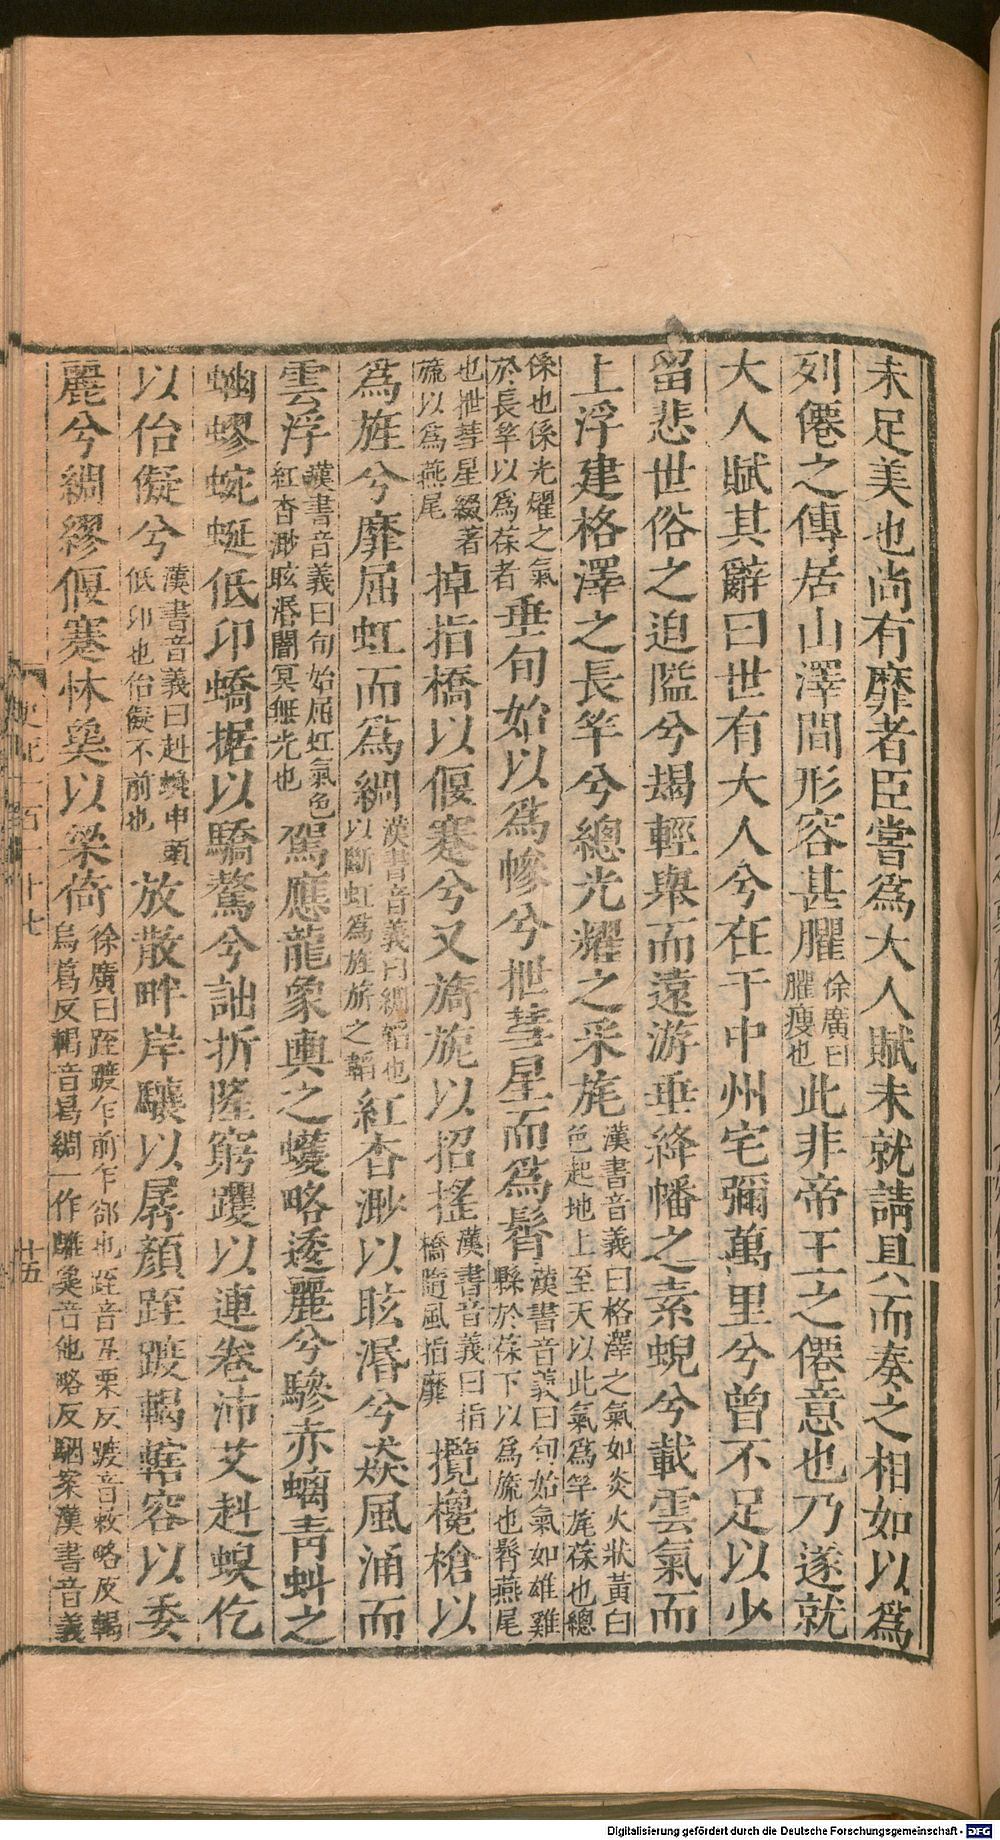 未足美也尚有靡者臣嘗爲大人賦未就請具而奏之相如以爲
列僊之傳居山澤間形容甚臞徐廣曰臞瘦也此非帝王之僊意也乃遂就
大人賦其辭曰世有大人兮在于中州宅彌萬里兮曾不足以少
留悲世俗之迫隘兮朅輕舉而遠游垂絳幡之素蜺兮載雲氣而
上浮建格澤之長竿兮總光耀之采旄漢書音義曰格澤之氣如炎火狀黃白色起地上至天以此氣爲竿旄葆也總
係也係光燿之氣於長竿以爲葆者垂旬始以爲幓兮抴彗星而爲髾漢書音義曰旬始氣如雄雞縣於葆下以爲旒也髾燕尾
也抴彗星綴著旒以爲燕尾掉指橋以偃蹇兮又旖旎以招搖漢書音義曰指橋隨風指靡攬欃槍以
爲旌兮靡屈虹而爲綢漢書音義曰綢韜也以斷虹爲旌旂之韜紅杳渺以眩湣兮猋風涌而
雲浮漢書音義曰旬始屈虹氣色紅杳渺眩湣闇冥無光也駕應龍象輿之蠖略逶麗兮驂赤螭青虯之
蚴蟉蜿蜒低卬夭蟜据以驕驁兮詘折隆窮躩以連卷沛艾赳螑仡
以佁儗兮漢書音義曰赳螑申頸低卬也佁儗不前也放散畔岸驤以孱顏跮踱輵轄容以委
麗兮綢繆偃蹇怵㚟以梁倚徐廣曰跮踱乍前乍卻也跮音丑栗反踱音敕略反輵烏葛反轄音曷綢一作雕㚟音他略反駰案漢書音義
史記一百一十七
廿五
Digitalisierung gefördert durch die Deutsche Forschungsgemeinschaft - DFG